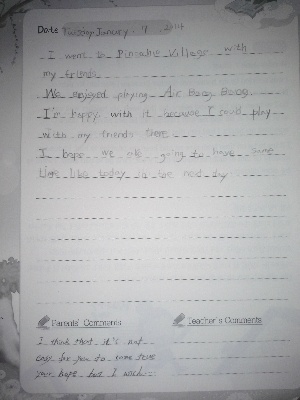 Date Tuesday January 7 2014
I went to Pinnacle Village with
my friends
We enjoyed playing Air Bang Bang
I'm happy with it because I could play
with my friends there
I hope we are going to have same
time like today in the next day
Parents' Comments
Teacher's Comments
I think that it's not
easy for you to come true
your hope but I wish